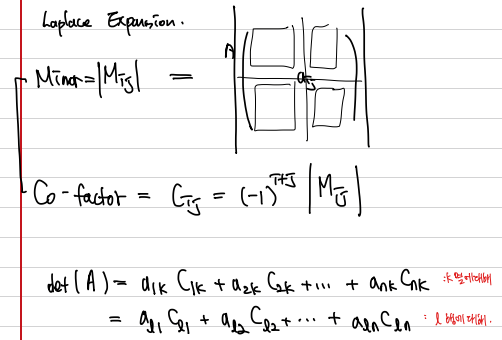 Laplace Expansion.
Minor = |M_ij| =
A
a_ij
Co-factor = C_ij = (-1)^{i+j} |M_ij|
det(A) = a_1k C_1k + a_2k C_2k + ... + a_nk C_nk : k 열에대해
= a_l1 C_l1 + a_l2 C_l2 + ... + a_ln C_ln : l 행에대해.